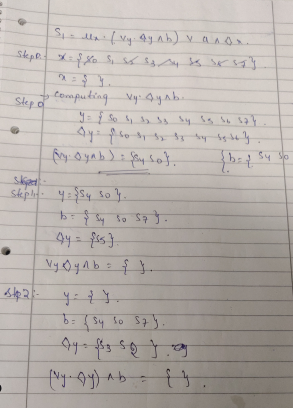 S1 = μx. (νy. ◇y ∧ b) ∨ a ∧ ◇x.
Step0: x = {s0 s1 s2 s3 s4 s5 s6 s7}
x = { }.
Step 0 computing νy. ◇y ∧ b.
y = {s0 s1 s2 s3 s4 s5 s6 s7}
◇y = {s0 s1 s2 s3 s4 s5 s6}
(νy. ◇y ∧ b) = {s4 s0}. {b = { s4 s0
Step1: y = {s4 s0}.
b = { s4 s0 s7}
◇y = {s5}
νy ◇y ∧ b = { }.
Step2:- y = { }.
b = {s4 s0 s7}.
◇y = {s3 s2 }.
(νy. ◇y) ∧ b = { }.